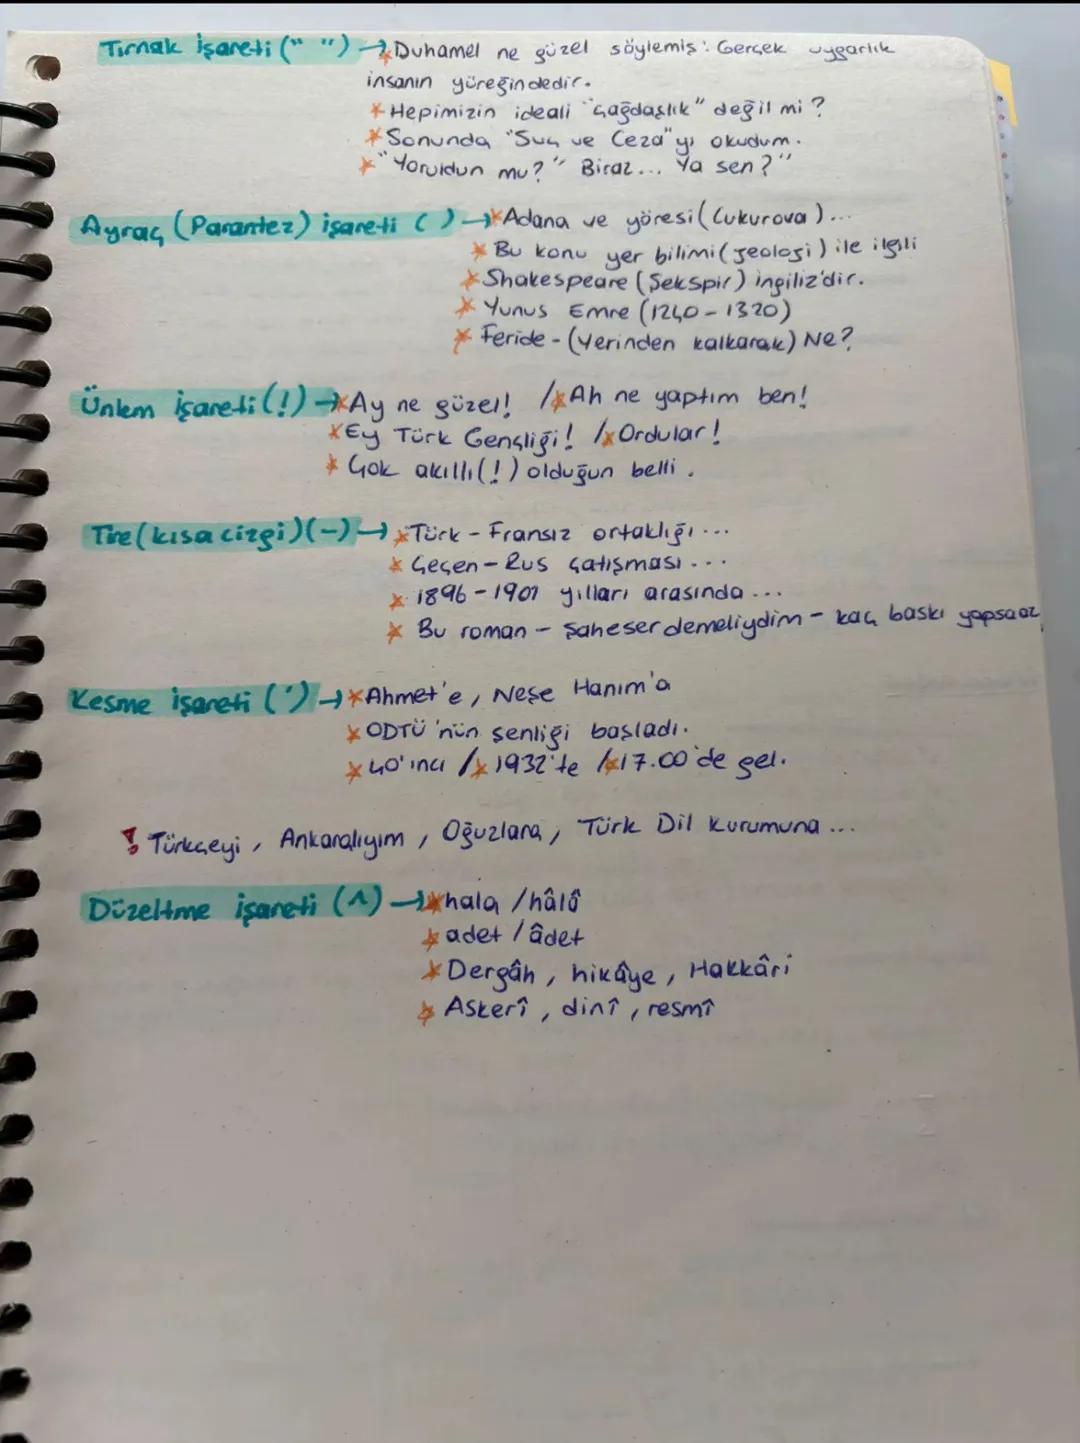 Tırnak işareti (" ") → * Duhamel ne güzel söylemiş: Gerçek uygarlık
insanın yüreğindedir.
* Hepimizin ideali "çağdaşlık" değil mi?
* Sonunda "Suç ve Ceza"yı okudum.
* "Yoruldun mu?" Biraz... Ya sen?"
Ayraç (Parantez) işareti ( ) → * Adana ve yöresi (Çukurova)...
* Bu konu yer bilimi (jeoloji) ile ilgili
* Shakespeare (Şekspir) ingiliz'dir.
* Yunus Emre (1240-1320)
* Feride - (Yerinden kalkarak) Ne?
Ünlem işareti (!) → * Ay ne güzel! / * Ah ne yaptım ben!
* Ey Türk Gençliği! / * Ordular!
* Çok akıllı(!) olduğun belli.
Tire (kısa çizgi) (-) → * Türk - Fransız ortaklığı...
* Çeçen - Rus çatışması...
* 1896 - 1901 yılları arasında...
* Bu roman - şaheser demeliydim - kaç baskı yapsa az
Kesme işareti (') → * Ahmet'e, Neşe Hanım'a
* ODTÜ'nün şenliği başladı.
* 40'ıncı / * 1932'te / * 17.00'de gel.
! Türkçeyi, Ankaralıyım, Oğuzlara, Türk Dil Kurumuna...
Düzeltme işareti (^) → * hala / hâlâ
* adet / âdet
* Dergâh, hikâye, Hakkâri
* Askerî, dinî, resmî